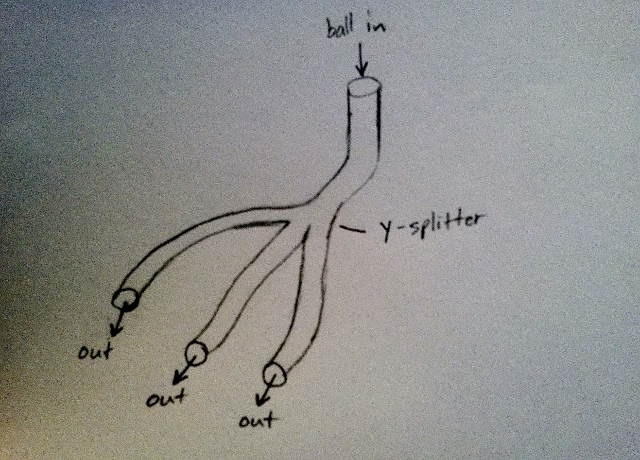 ball in
y-splitter
out
out
out